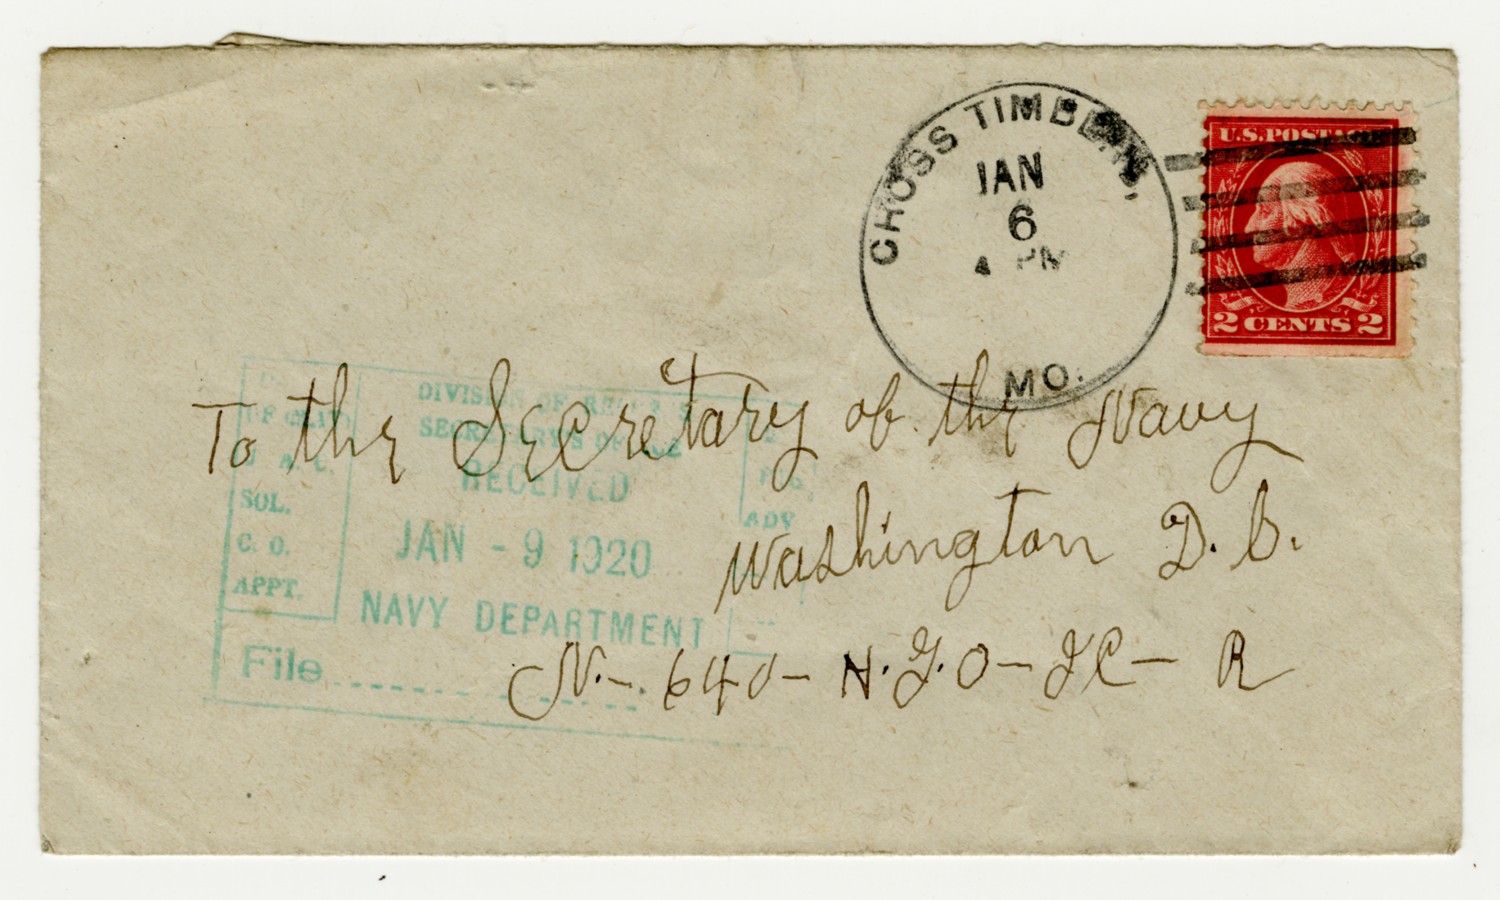 CROSS TIMBERS,
JAN
6
4 PM
MO.
U.S. POSTAGE
2 CENTS 2
To the Secretary of the Navy
Washington D. C.
N. - 640 - N. J. O - JC - R
DIVISION OF
SECRETARY'S OFFICE
RECEIVED
JAN - 9 1920
NAVY DEPARTMENT
SOL.
C. O.
APPT.
ADV
File